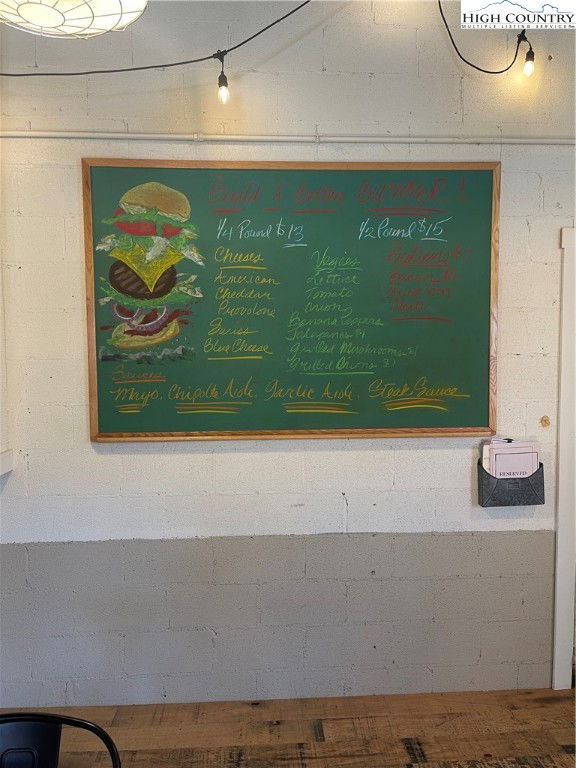 HIGH COUNTRY
MULTIPLE LISTING SERVICE
Build A Better
1/4 Pound $13
1/2 Pound $15
Cheeses
American
Cheddar
Provolone
Swiss
Blue Cheese
Veggies
Lettuce
Tomato
Onion
Banana Peppers
Jalapenos
Grilled Mushrooms
Grilled Onions
Sauces
Mayo, Chipotle Aioli, Garlic Aioli, Steak Sauce
RESERVED